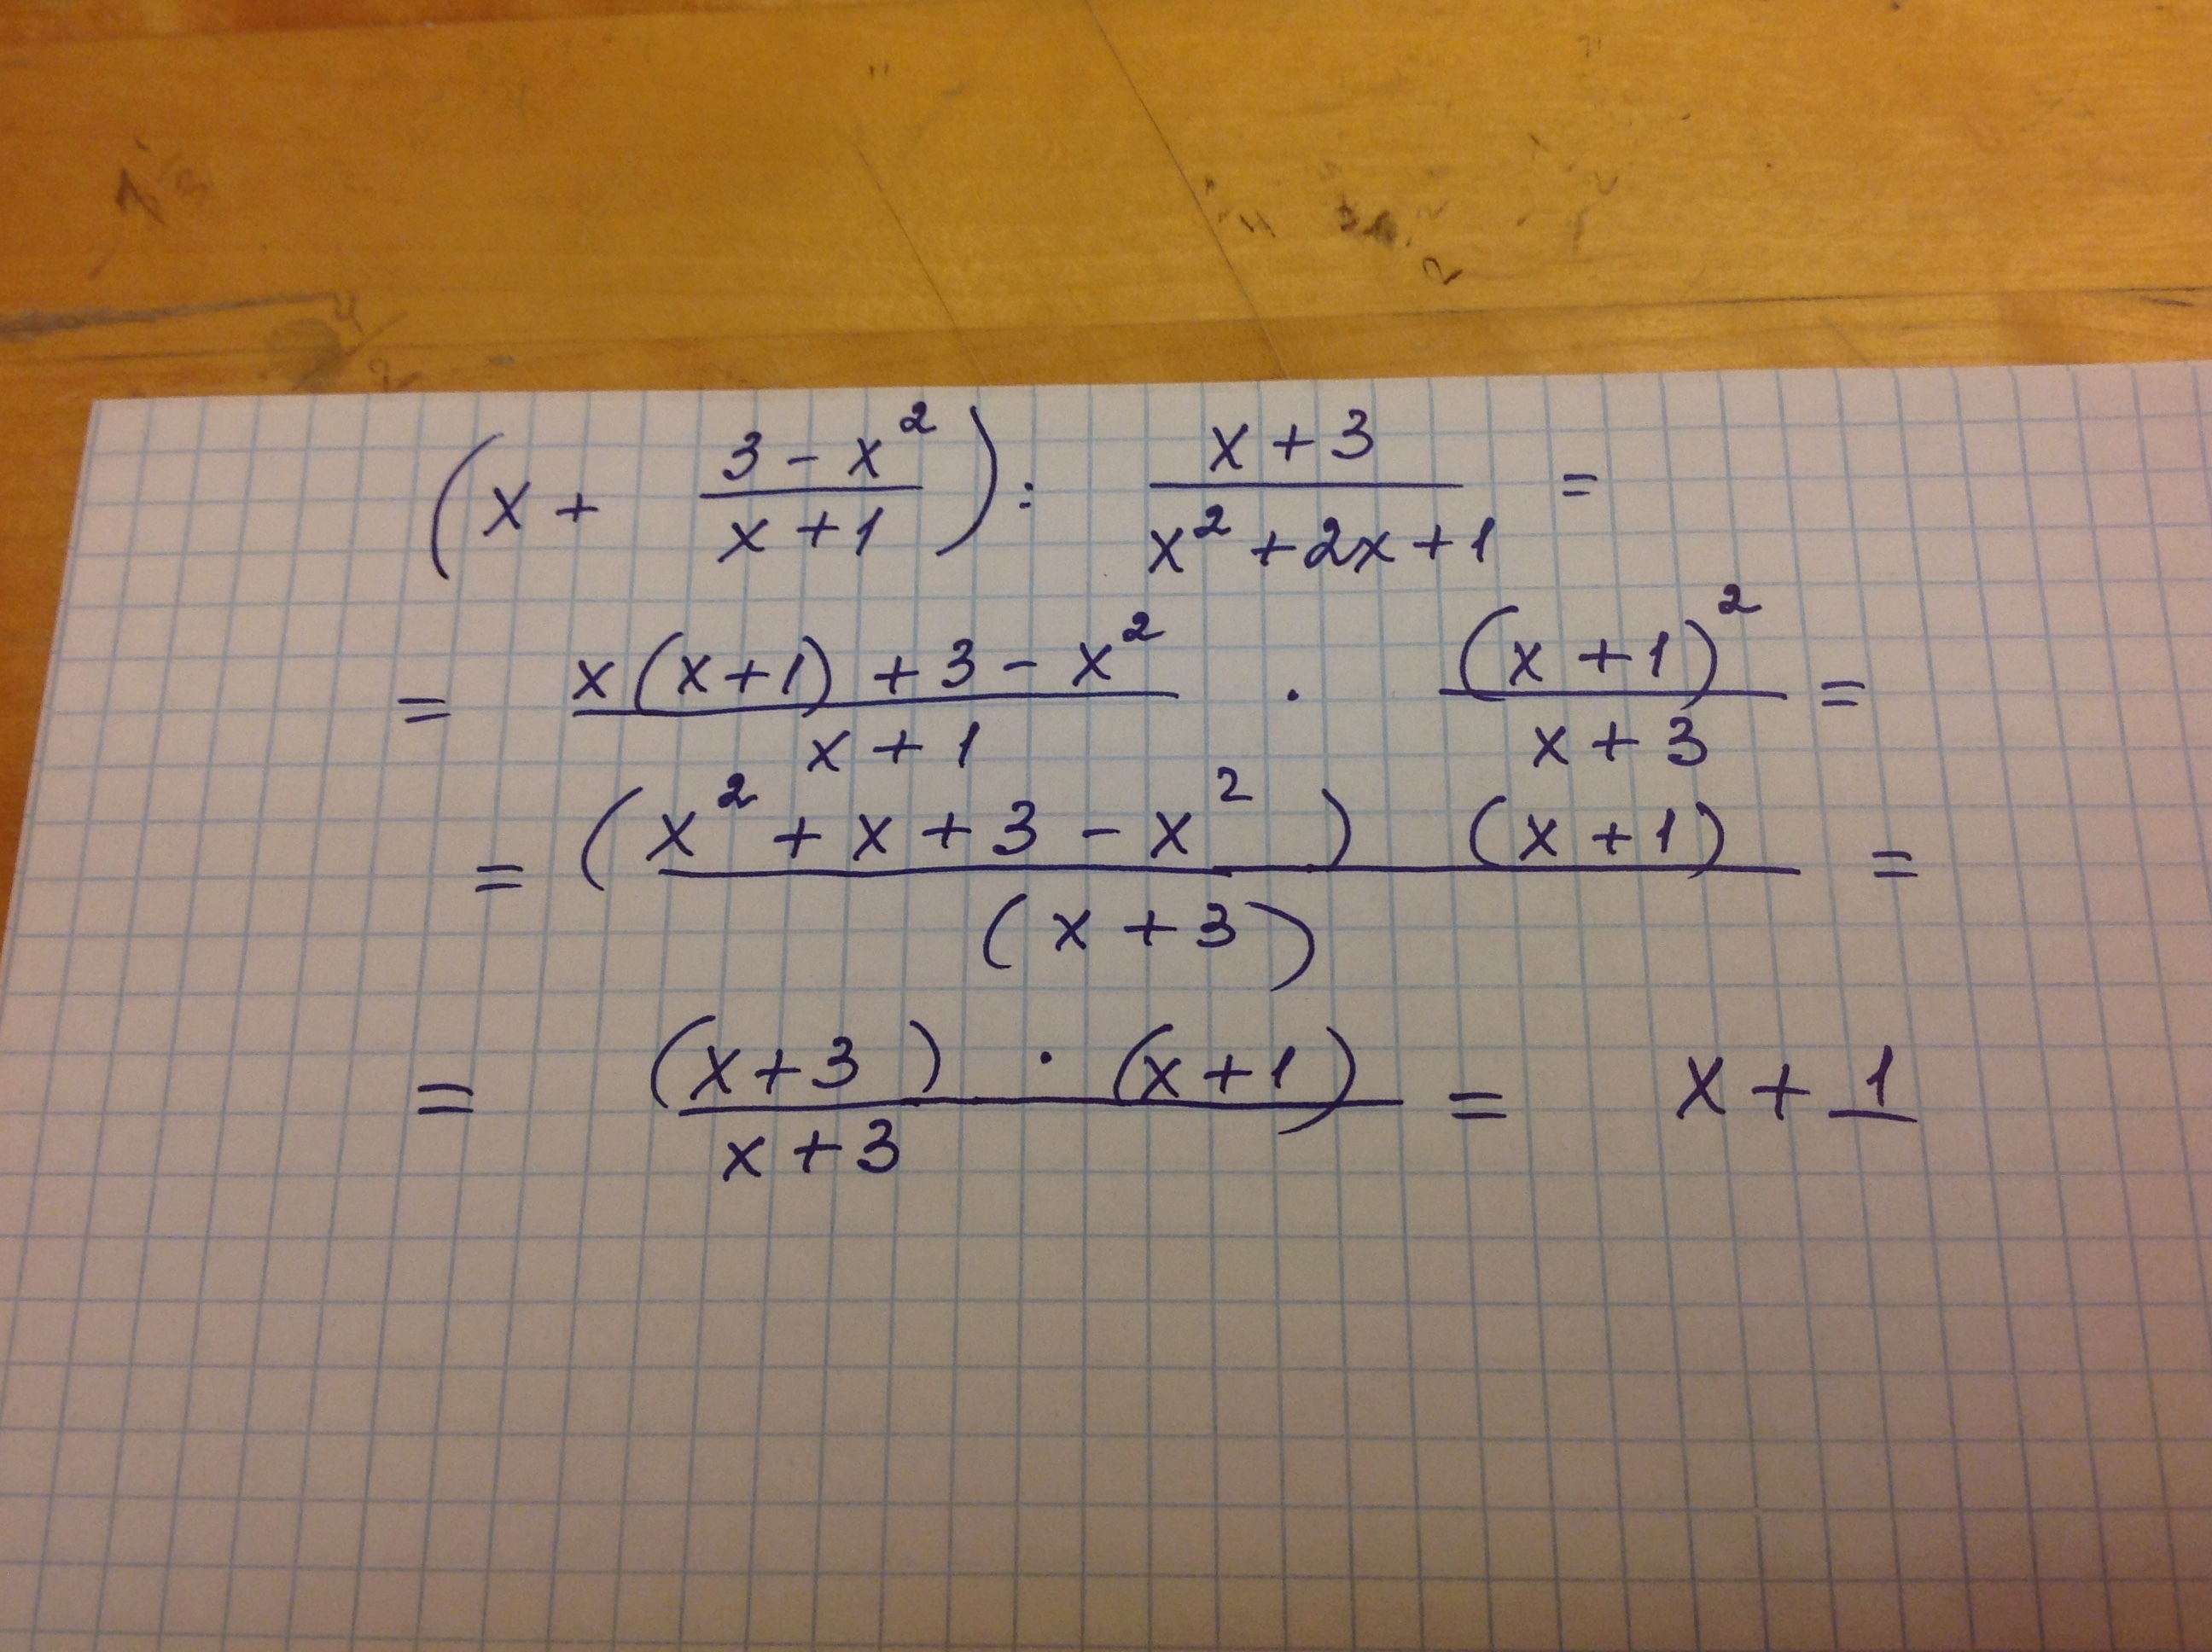 (x + \frac{3 - x^2}{x + 1}) : \frac{x + 3}{x^2 + 2x + 1} =
= \frac{x(x+1) + 3 - x^2}{x + 1} \cdot \frac{(x + 1)^2}{x + 3} =
= \frac{(x^2 + x + 3 - x^2) (x + 1)}{(x + 3)} =
= \frac{(x+3) \cdot (x+1)}{x+3} = x + 1